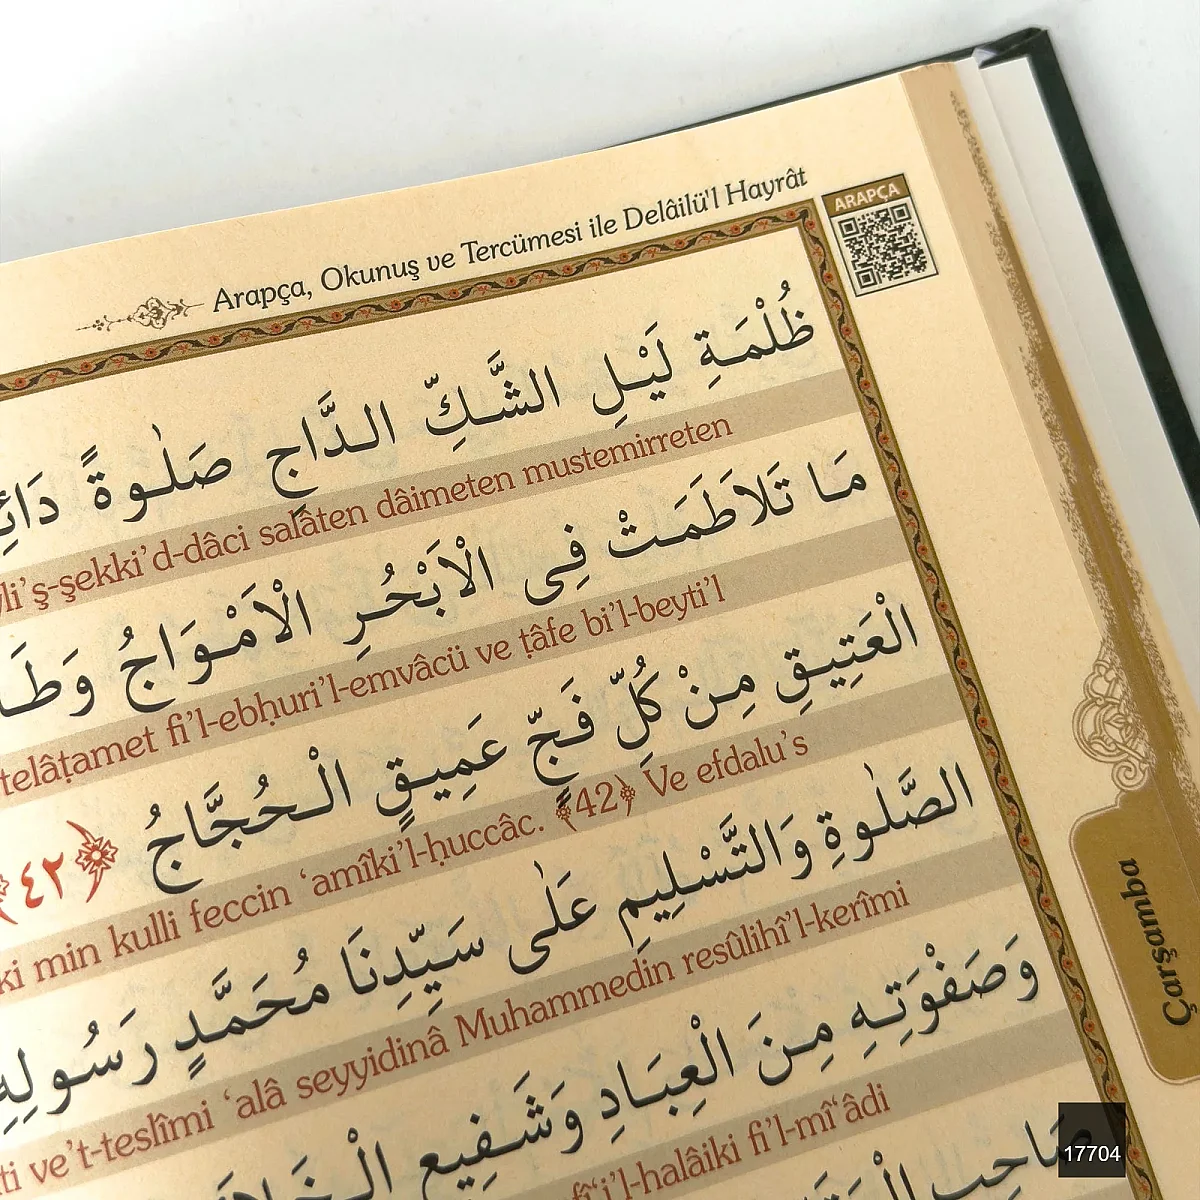 Arapça, Okunuş ve Tercümesi ile Delâilü'l Hayrât
ARAPÇA
ظُلْمَةِ لَيْلِ الشَّكِّ الدَّاجِ صَلٰوةً
ş-şekki'd-dâci salâten dâimeten mustemirreten
مَا تَلَاطَمَتْ فِى الْاَبْحُرِ الْاَمْوَاجُ
telâṭamet fi'l-ebḥuri'l-emvâcü ve ṭâfe bi'l-beyti'l
الْعَتِيقِ مِنْ كُلِّ فَجٍّ عَمِيقٍ الْحُجَّاجُ ﴿٤٢﴾
min kulli feccin ‘amîki'l-ḥuccâc. ﴾42﴿ Ve efdalu's
الصَّلٰوةِ وَالتَّسْلِيمِ عَلٰى سَيِّدِنَا مُحَمَّدٍ رَسُولِهِ
ve't-teslîmi ‘alâ seyyidinâ Muhammedin resûlihî'l-kerîmi
وَصَفْوَتِهِ مِنَ الْعِبَادِ وَشَفِيعِ
fî‘i'l-halâiki fi'l-mî‘âdi
صَاحِبِ
Çarşamba
17704